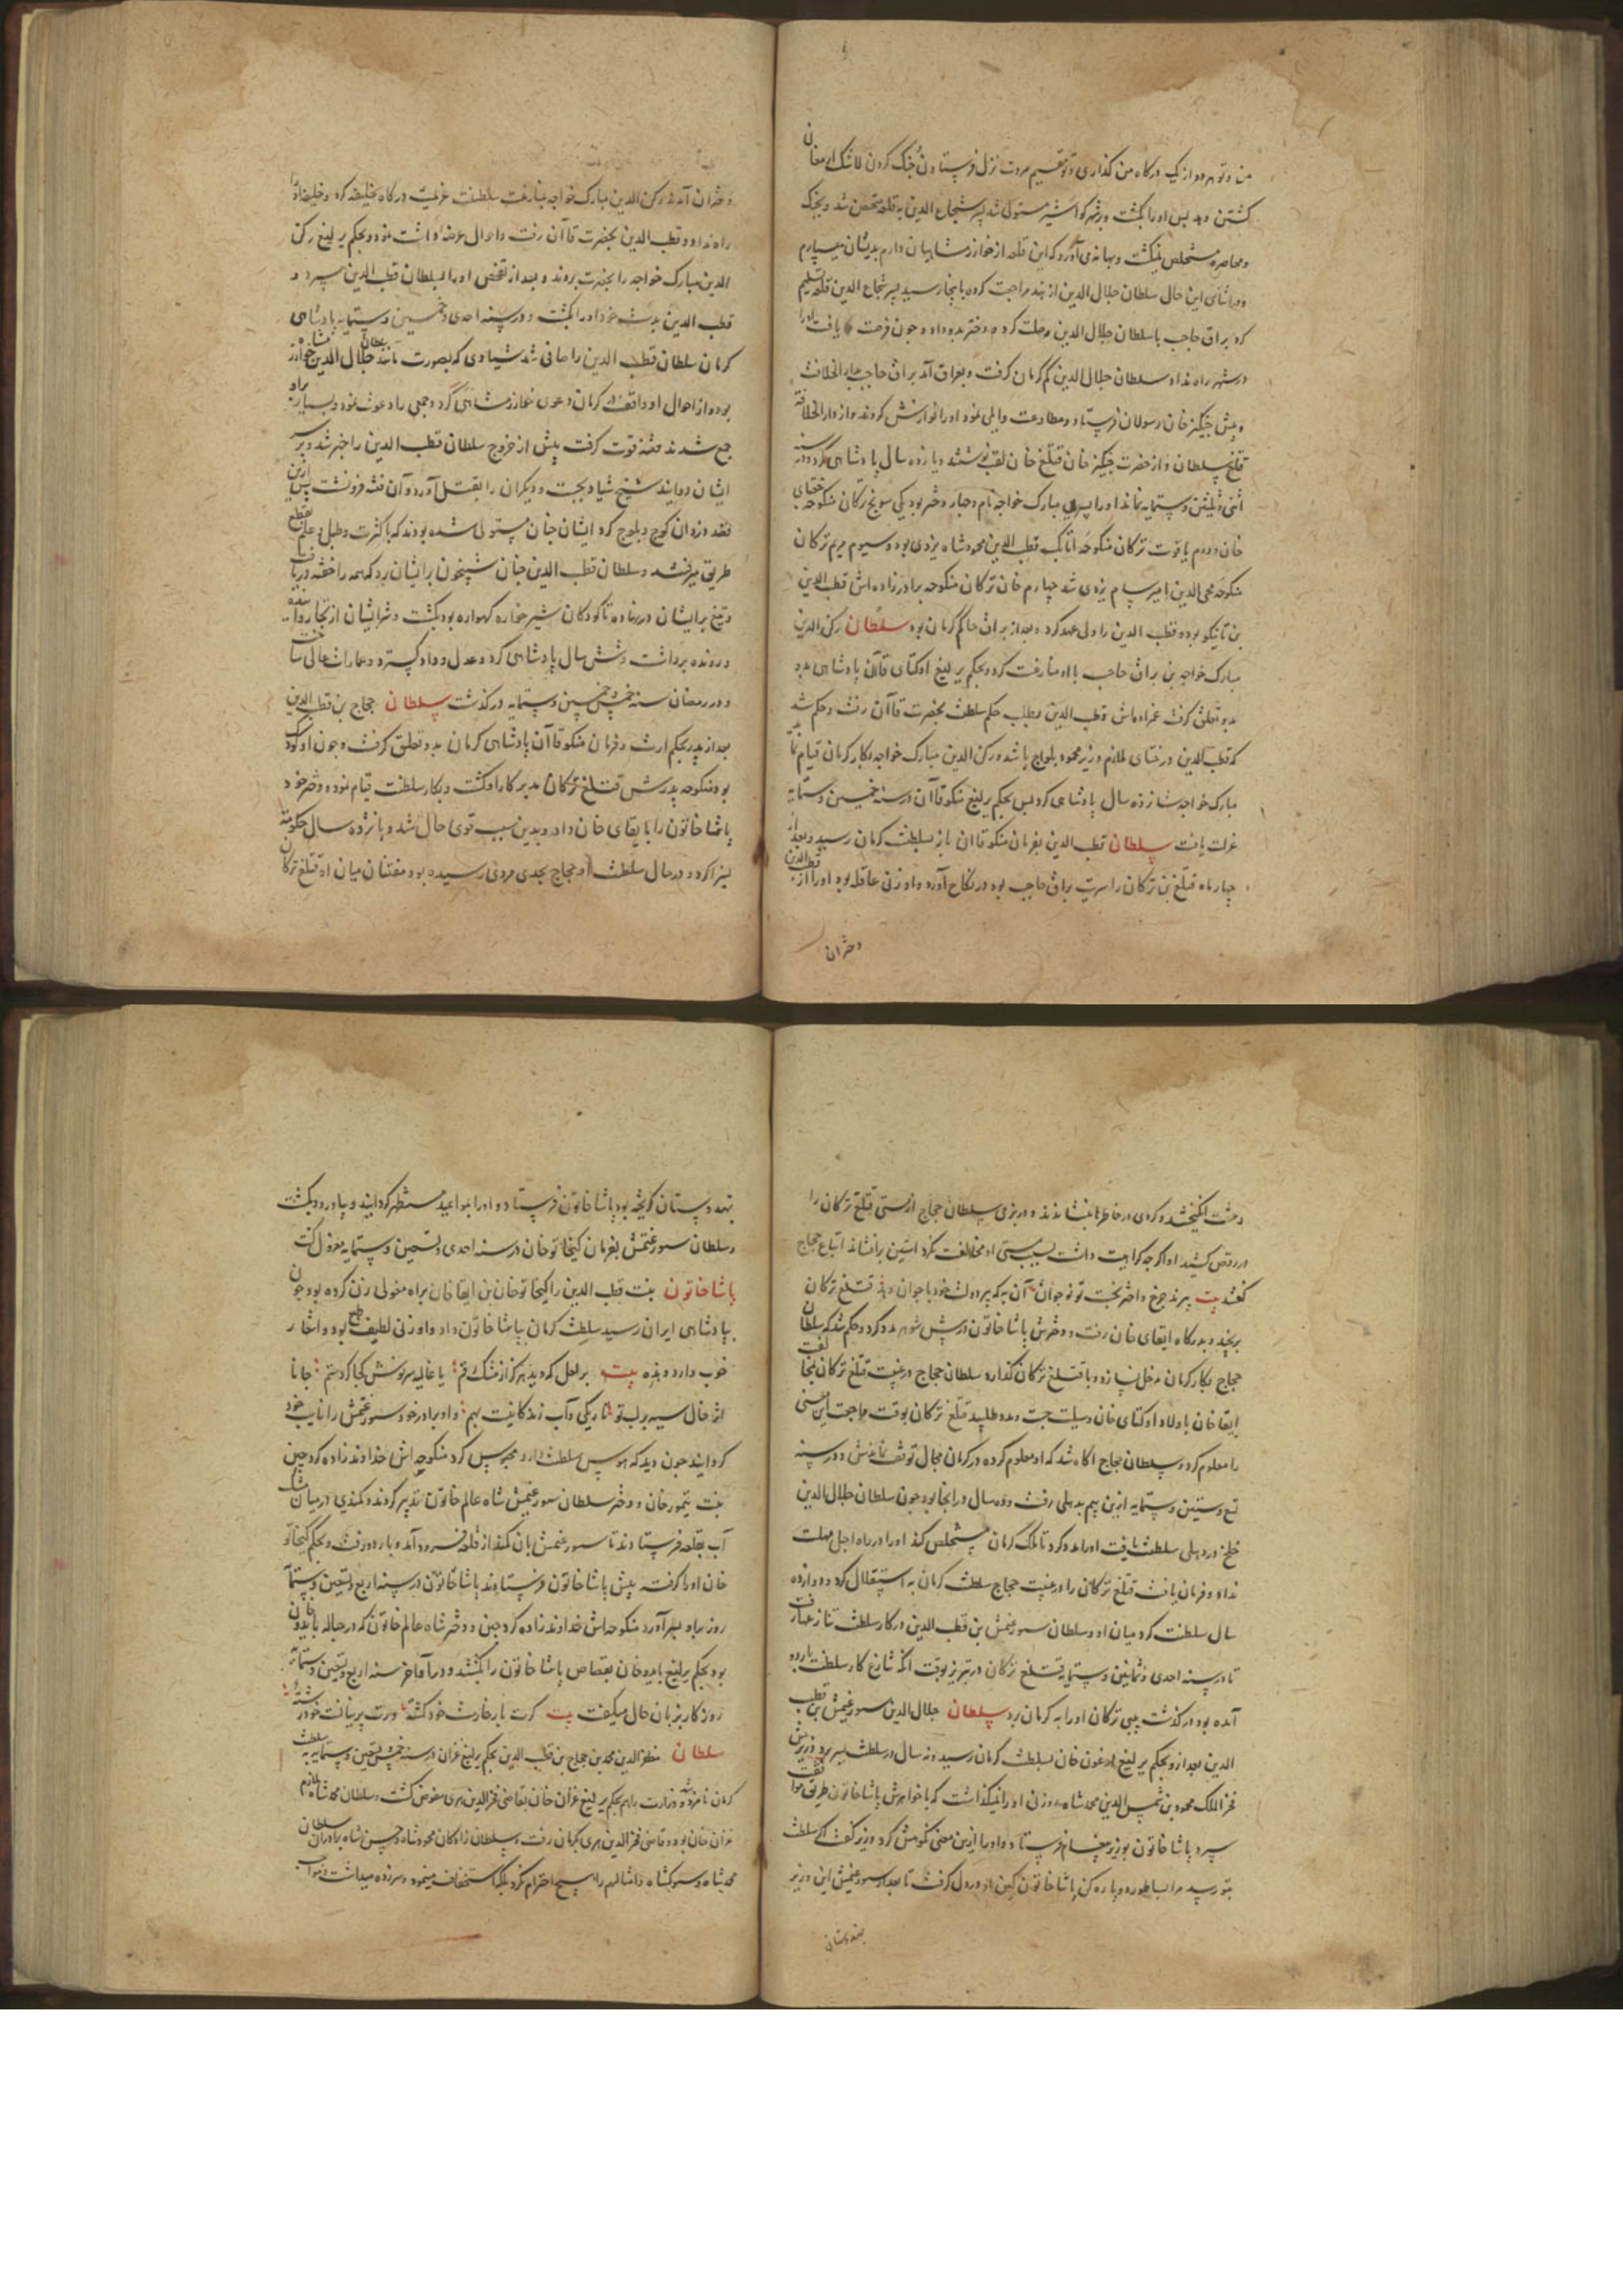 من و تو هر دو از یک درگاه من گذاری و تو مروت نزل فرستادن جنگ کردن
کشتن دهد پس او را بکشت و بر شهر کواشیر مستولی شد پسر شجاع الدین به قلعه متحصن شد و بجنگ
و محاصره مستخلص نمیگشت و بهانه می آورد که این قلعه از خوارزمشاهیان دارم بدیشان میسپارم
و در اثنای این حال سلطان جلال الدین از هند مراجعت کرده بانجا رسید پسر شجاع الدین قلعه تسلیم
کرد براق حاجب با سلطان جلال الدین وصلت کرد و دختر بدو داد و چون فرصت یافت او را
در شهر راه نداد و سلطان جلال الدین کم کرمان گرفت و بعراق آمد براق حاجب بدار الخلافت
و پیش چنگیز خان رسولان فرستاد و مطاوعت و ایلی نمود او را نوازش کردند و از دار الخلافة
قتلغ سلطان و از حضرت چنگیز خان قتلغ خان لقب نوشتند و یازده سال پادشاهی کرد و در سنه
اثنی و ثلثین و ستمایه نماند او را پسری مبارک خواجه نام و چهار دختر بود یکی سونج ترکان منکوحه جغتای
خان و دوم یاقوت ترکان منکوحه اتابک قطب الدین محمود شاه یزدی بود و سیوم مریم ترکان
منکوحه محی الدین امیر سام یزدی شد چهارم خان ترکان منکوحه برادر زاده اش قطب الدین
بن تاینکو بود و قطب الدین را ولی عهد کرد و بعد از براق حاکم کرمان بود سلطان رکن الدین
مبارک خواجه بن براق حاجب با او منازعت کرد و بحکم یرلیغ اوکتای قاآن پادشاهی بدو
بدو تعلق گرفت عمزاده اش قطب الدین بطلب حکم سلطنت بحضرت قاآن رفت و حکم شد
که قطب الدین در ختای ملازم وزیر محمود یلواج باشد و رکن الدین مبارک خواجه بکار کرمان قیام نماید
مبارک خواجه شانزده سال پادشاهی کرد پس بحکم یرلیغ منکو قاآن در سنه خمسین و ستمایه
عزلت یافت سلطان قطب الدین بفرمان منکو قاآن باز بسلطنت کرمان رسید و بعد از
چهار ماه قتلغ ترکان را سریت براق حاجب بود در نکاح آورد و او زنی عاقله بود او را از قطب الدین
دختران
دختران آمدند رکن الدین مبارک خواجه بمنازعت سلطنت عزیمت درگاه خلیفه کرد و خلیفه او را
راه نداد و قطب الدین بحضرت قاآن رفت و احوال عرضه داشت نمود و بحکم یرلیغ رکن
الدین مبارک خواجه را بحضرت بردند و بعد از تفحص او را بسلطان قطب الدین سپرد و
قطب الدین بدست خود او را بکشت و در سنه احدی و خمسین و ستمایه پادشاهی
کرمان سلطان قطب الدین را صافی شد شیادی که بصورت مانند سلطان جلال الدین خوارزمشاه
بود و از احوال او واقف در کرمان دعوی خوارزمشاهی کرد و جمعی را دعوت نمود و بسیار برو
جمع شدند فتنه قوت گرفت پیش از خروج سلطان قطب الدین را خبر شد و بر سر
ایشان دوانید شیخ شیاد بجست و دیگران را بقتل آورد و آن فتنه فرو نشست پس ازین
قصد دزدان کوچ و بلوچ کرد ایشان چنان مستولی شده بودند که با کثرت و طبل و علم بقطع
طریق میرفتند و سلطان قطب الدین چنان شبیخون بر ایشان برد که همه را خفته دریافت
و تیغ بر ایشان در نهاد تا کودکان شیر خواره گهواره بود بکشت و شر ایشان از تجار و آینده
و رونده برداشت و شش سال پادشاهی کرد و عدل و داد گسترد و عمارات عالی ساخت
و در رمضان سنه خمس و خمسین و ستمایه درگذشت سلطان حجاج بن قطب الدین
بعد از پدر بحکم ارث و فرمان منکو قاآن پادشاهی کرمان بدو تعلق گرفت و چون او کودک
بود منکوحه پدرش قتلغ ترکان مدبر کار او گشت و بکار سلطنت قیام نمود و دختر خود
پاشا خاتون را بابقای خان داد و بدین سبب قوی حال شد و پانزده سال حکومت
بسزا کرد و در حال سلطنت او حجاج بحدی مردی رسیده بود مفتنان میان او و قتلغ ترکان
وحشت انگیختند و گردی در خاطرها بنشاندند و در بزمی سلطان حجاج از مستی قتلغ ترکان را
در رقص کشید او اگر چه کراهیت داشت بسبب مستی او مخالفت نکرد آستین برافشاند اتباع حجاج
گفتند بیت پیرند چرخ و اختر بخت تو نوجوان آن به که پیر دولت خود با جوان دهد قتلغ ترکان
برنجید و بدرگاه ابقای خان رفت و دخترش پاشا خاتون در پیش شوهر مدد کرد و حکم شد که سلطان
حجاج بکار کرمان مدخل نسازد و با قتلغ ترکان گذارد سلطان حجاج در غیبت قتلغ ترکان بمخالفت
ابقا خان با اولاد اوکتای خان وسیلت جست و مدد طلبید قتلغ ترکان بوقت مراجعت این معنی
را معلوم کرد و سلطان حجاج آگاه شد که او معلوم کرده در کرمان مجال توقف نماندش و در سنه
تسع و ستین و ستمایه ازین بیم بدهلی رفت و ده سال در آنجا بود چون سلطان جلال الدین
خلج در دهلی سلطنت یافت او را مدد کرد تا ملک کرمان مستخلص کند او را در راه اجل مهلت
نداد و فرمان یافت قتلغ ترکان را در غیبت حجاج سلطنت کرمان به استقلال کرد و دوازده
سال سلطنت کرد میان او و سلطان سیورغتمش بن قطب الدین در کار سلطنت تنازع
تا در سنه احدی و ثمانین و ستمایه قتلغ ترکان در تبریز بوقت آنکه تنازع کار سلطنت باردو
آمده بود درگذشت بیبی ترکان او را به کرمان برد سلطان جلال الدین سیورغتمش بن قطب
الدین بعد از و بحکم یرلیغ ارغون خان بسلطنت کرمان رسید و نه سال در سلطنت بسر برد وزیرش
فخر الملک محمود بن شمس الدین محمد شاه روزنی او را نمیگذاشت که با خواهرش پاشا خاتون طریق موافقت
سپرد پاشا خاتون بوزیر پیغام فرستاد و او را ازین معنی نکوهش کرد وزیر گفت اگر سلطنت
بتو رسید مرا بساطور دو پاره کن پاشا خاتون کین او در دل گرفت تا بعد از سیورغتمش این وزیر
بهندوستان
بهندوستان گریخته بود پاشا خاتون فرستاد و او را بمواعید مستظهر گردانید و بیاورد و بکشت
و سلطان سیورغتمش بفرمان کیخاتو خان در سنه احدی و تسعین و ستمایه معزول گشت
پاشا خاتون بنت قطب الدین را کیخاتو خان بن ابقا خان براه مغولی زن کرده بود چون
بپادشاهی ایران رسید سلطنت کرمان بپاشا خاتون داد و او زنی لطیف طبع بود و اشعار
خوب دارد و بذه بیت بر لعل که دید هرگز از مشک رقم یا غالیه بر نوش کجا کرد ستم جانا
اثر خال سیه بر لب تو تاریکی و آب زندگانیست بهم و او برادر خود سیورغتمش را نایب خود
گردانید چون دید که هوس سلطنت دارد محبوس کرد منکوحه اش خداوند زاده کردوجین
بنت تیمور خان و دختر سلطان سیورغتمش شاه عالم خاتون تدبیر کردند و کمندی در میان مشک
آب بقلعه فرستادند تا سیورغتمش بان کمند از قلعه فرود آمد و باردو رفت و بحکم کیخاتو
خان او را گرفته پیش پاشا خاتون فرستادند پاشا خاتون در سنه اربع و تسعین و ستمایه
روز برادر بسر آورد منکوحه اش خداوند زاده کردوجین و دختر شاه عالم خاتون که در حباله بایدو خان
بود بحکم یرلیغ بایدو خان بقصاص پاشا خاتون را بکشتند و در آخر سنه اربع و تسعین و ستمایه
روزگار بزبان حال میگفت بیت گرت بار خارست خود کشته ورت پرنیانست خود رشته
سلطان مظفر الدین محمد بن حجاج بن قطب الدین بحکم یرلیغ غزان در سنه خمس و تسعین و ستمایه به سلطنت
کرمان نامزد شد و وزارت را هم بحکم یرلیغ غزان خان بقاضی فخر الدین هری مفوض گشت و سلطان محمد شاه ملازم
غزان خان بود و قاضی فخر الدین هری بکرمان رفت و سلطان زادگان محمود شاه و حسن شاه برادران سلطان
محمد شاه و سیوکشاه و امثالهم را هیچ احترام نکرد بلکه استخفاف مینمود و سر زده میداشت و مواجب